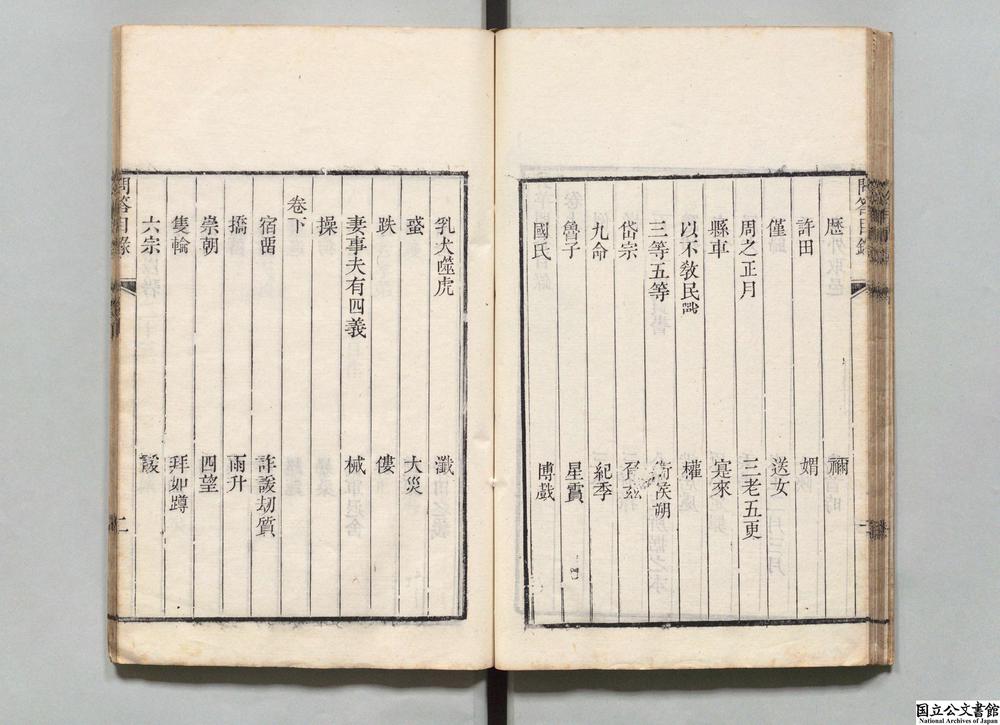 問答目錄
歷　禰
許田　媦
僅　送女
周之正月　三老五更
縣車　寔來
以不敎民戰　權
三等五等　衞侯朔
岱宗　負茲
九命　紀季
魯子　星霣
國氏　博戲
乳犬噬虎　瀸
蠆　大災
跌　僂
妻事夫有四義　械
操
卷下
宿畱　詐諼劫質
撟　雨升
崇朝　四望
隻輪　拜如蹲
六宗　諼
問答目錄　二
国立公文書館
National Archives of Japan